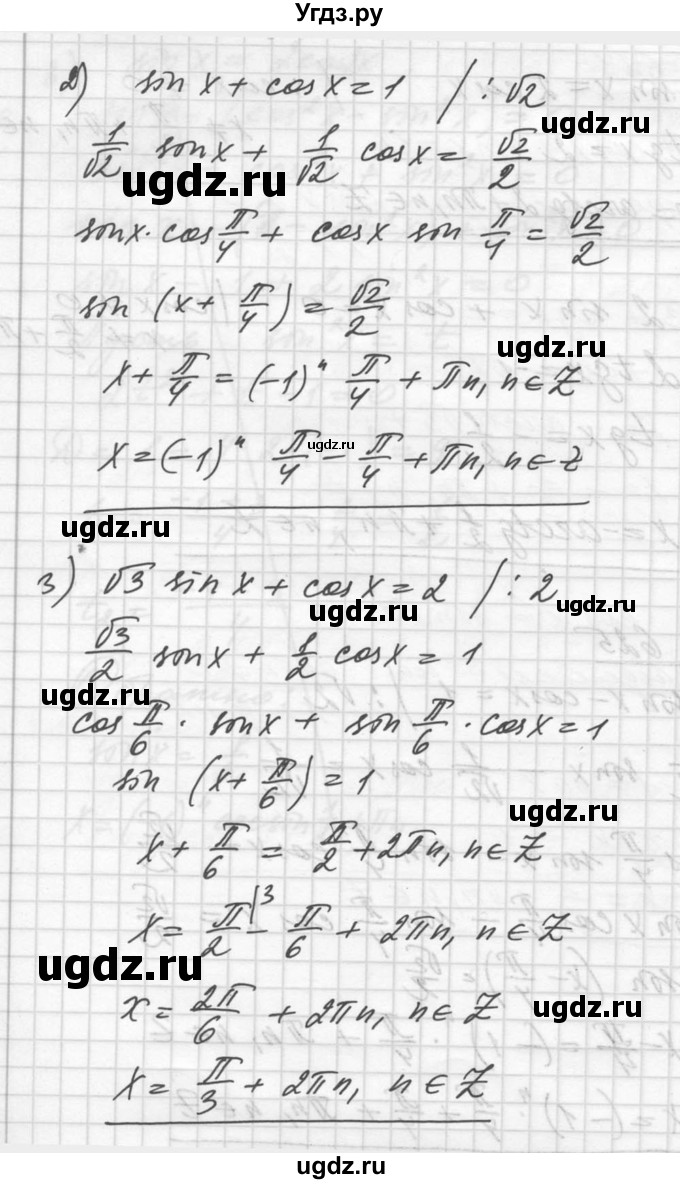 Угдз.ру
2) sin x + cos x = 1 / : √2
1/√2 sin x + 1/√2 cos x = √2/2
ugdz.ru
sin x · cos π/4 + cos x sin π/4 = √2/2
sin (x + π/4) = √2/2
ugdz.ru
x + π/4 = (-1)ⁿ π/4 + πn, n ∈ Z
ugdz.ru
x = (-1)ⁿ π/4 - π/4 + πn, n ∈ Z
ugdz.ru
3) √3 sin x + cos x = 2 / : 2
ugdz.ru
ugdz.ru
√3/2 sin x + 1/2 cos x = 1
ugdz.ru
cos π/6 · sin x + sin π/6 · cos x = 1
sin (x + π/6) = 1
ugdz.ru
x + π/6 = π/2 + 2πn, n ∈ Z
x = π/2 |3 - π/6 + 2πn, n ∈ Z
ugdz.ru
x = 2π/6 + 2πn, n ∈ Z
ugdz.ru
x = π/3 + 2πn, n ∈ Z
ugdz.ru